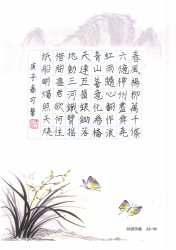 春風楊柳萬千條
六億神州盡舜堯
紅雨隨心翻作浪
青山着意化為橋
天連五嶺銀鋤落
地動三河鐵臂搖
借問瘟君欲何往
紙船明燭照天燒
庚子春可馨